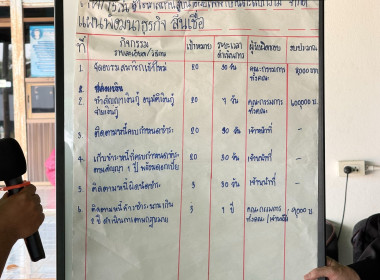 แผนพัฒนาธุรกิจ สินเชื่อ
ที่ กิจกรรม เป้าหมาย ระยะเวลา ผู้รับผิดชอบ งบประมาณ
รายละเอียด/วิธีการ ดำเนินการ
1. 20 30 วัน คณะกรรมการ
ทั้งคณะ
2.
ทำสัญญาเงินกู้ อนุมัติเงินกู้ 20 7 วัน คณะกรรมการ 600,000 บ.
จ่ายเงินกู้ ทั้งคณะ
3. ติดตามหนี้ครบกำหนดชำระ 20 30 วัน เจ้าหน้าที่ -
4. เก็บชำระหนี้ที่ครบกำหนดชำระ 20 30 วัน เจ้าหน้าที่ -
ตามสัญญา 1 ปี พร้อมดอกเบี้ย
5. ติดตามหนี้ผิดนัดชำระ 3 30 วัน เจ้าหน้าที่ -
6. ติดตามหนี้ค้างชำระนานเกิน 3 1 ปี คณะกรรมการ
2 ปี ดำเนินการตามกฎหมาย ทั้งคณะ/เจ้าหน้าที่